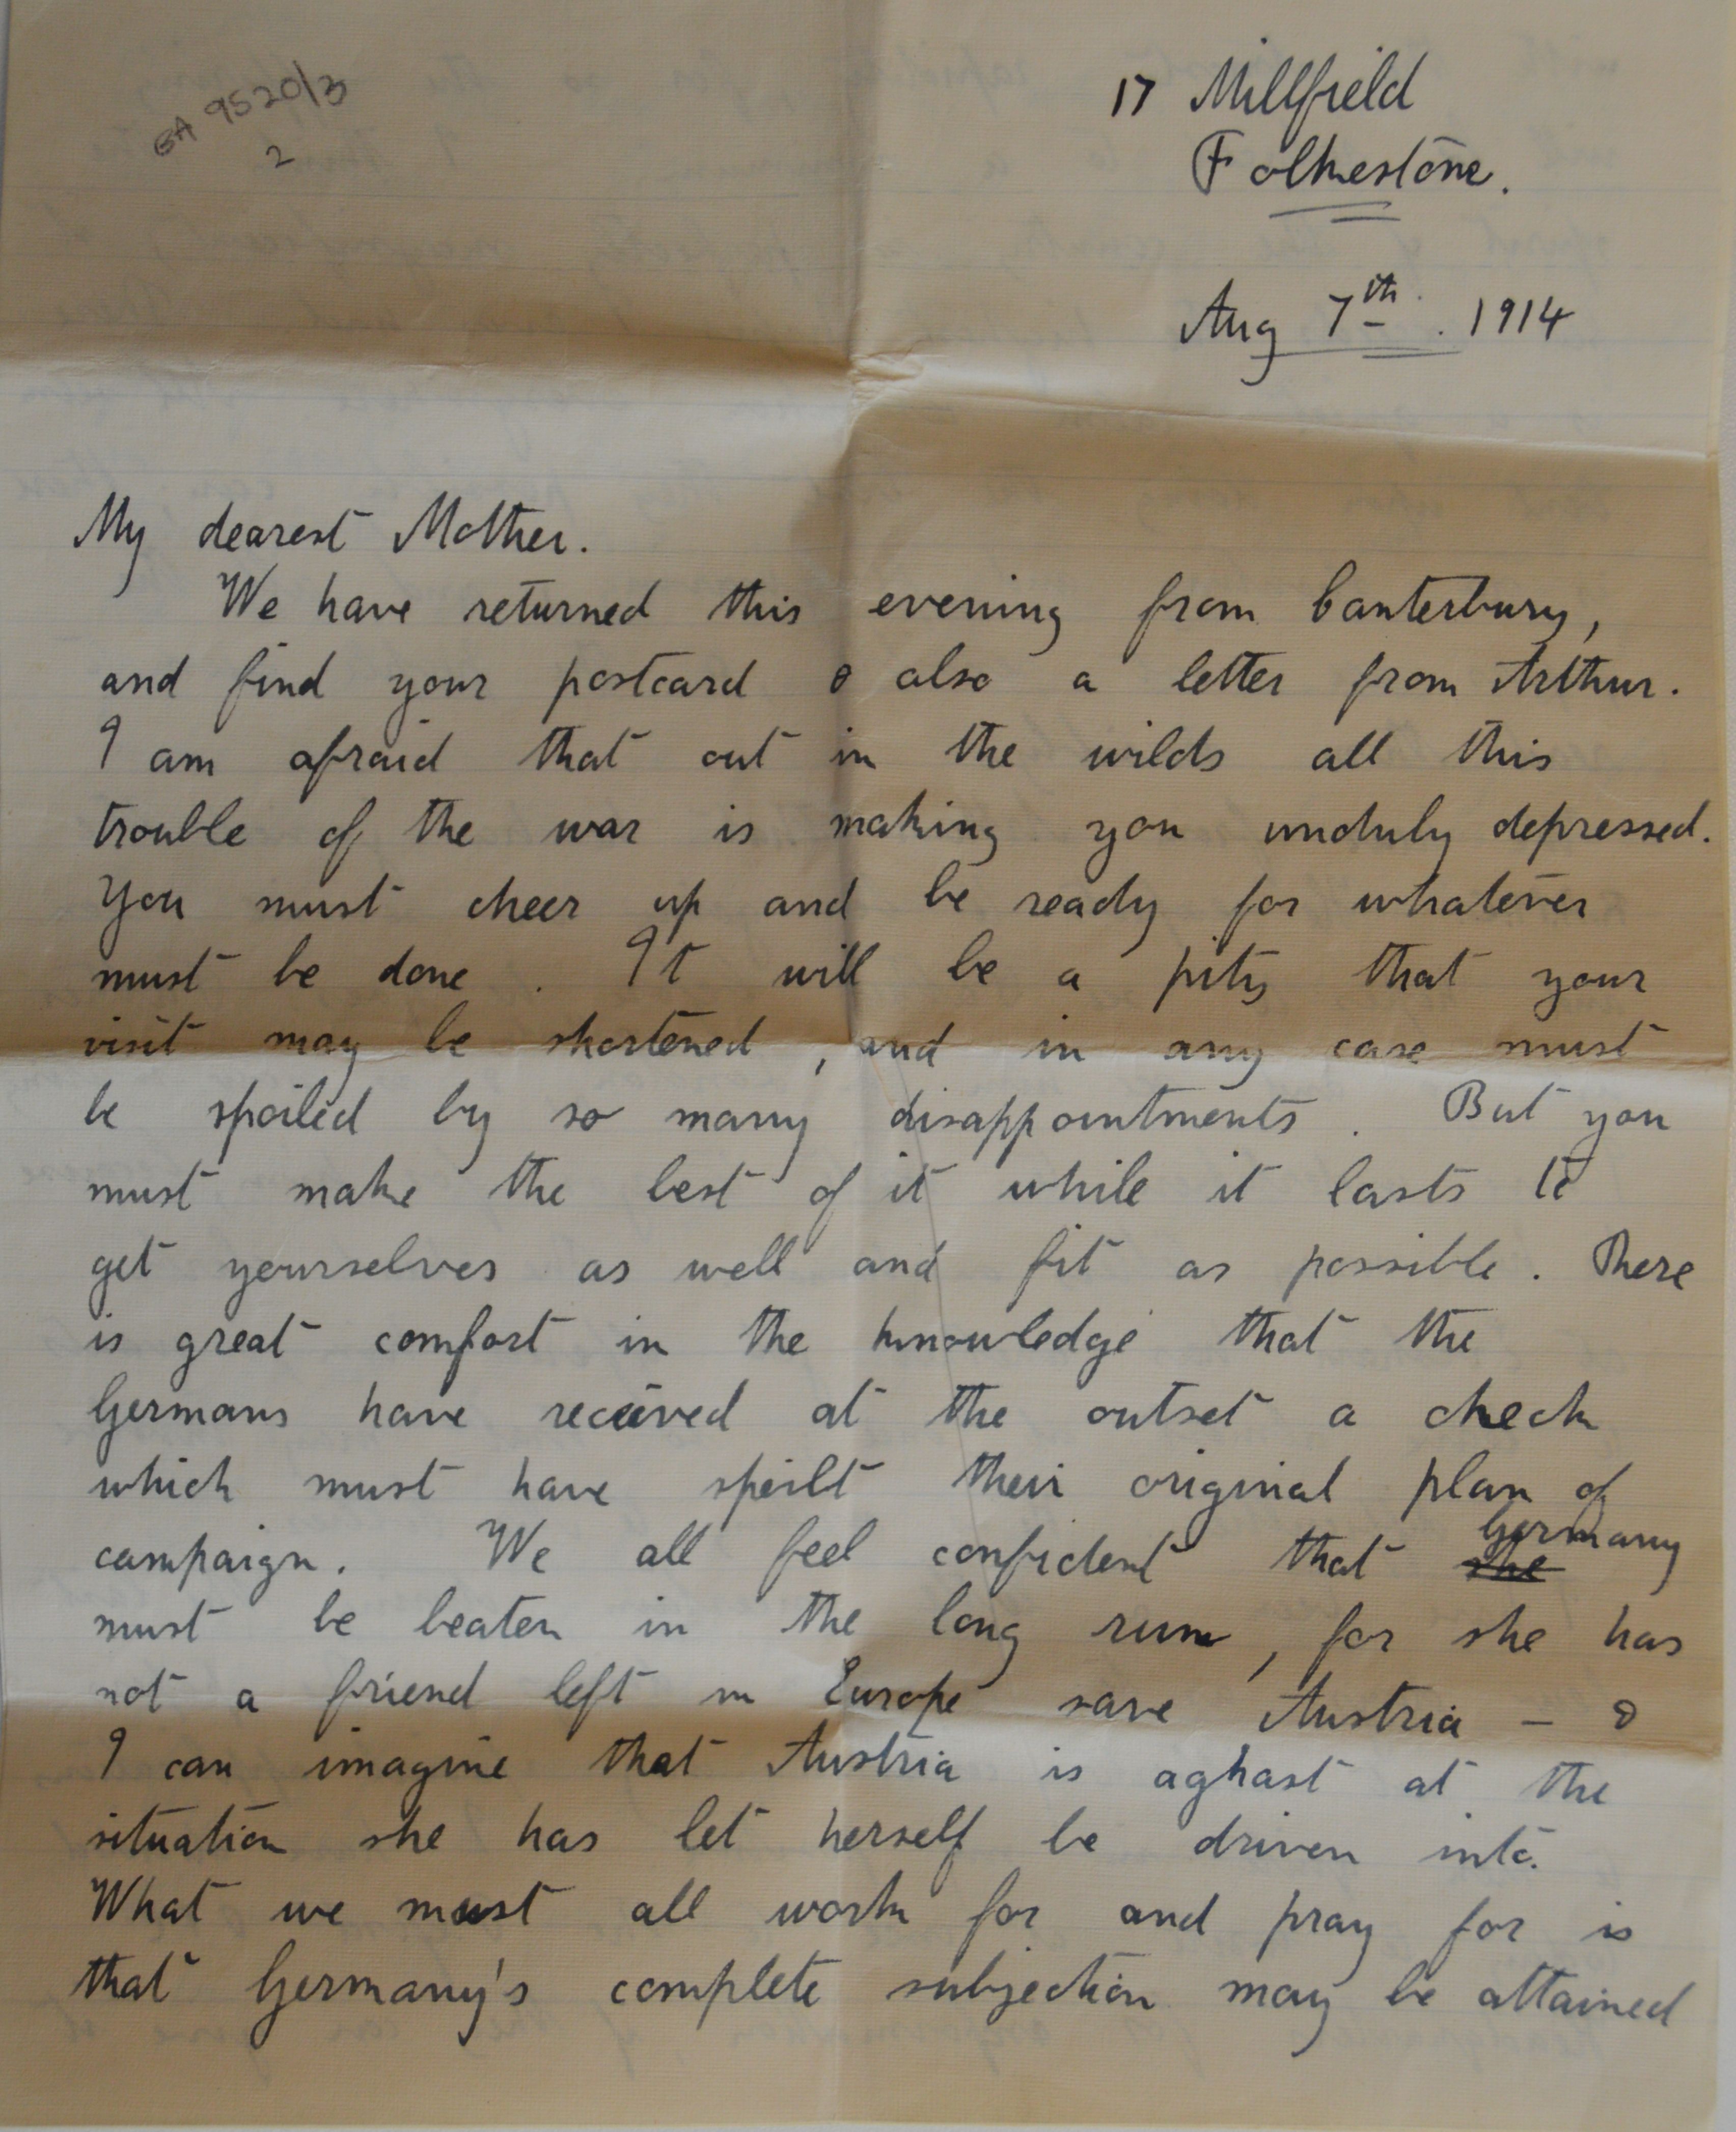 GA 9520/3
2
17 Millfield
Folkestone.
Aug 7th. 1914
My dearest Mother.
We have returned this evening from Canterbury,
and find your postcard & also a letter from Arthur.
I am afraid that out in the wilds all this
trouble of the war is making you unduly depressed.
You must cheer up and be ready for whatever
must be done. It will be a pity that your
visit may be shortened, and in any case must
be spoiled by so many disappointments. But you
must make the best of it while it lasts to
get yourselves as well and fit as possible. There
is great comfort in the knowledge that the
Germans have received at the outset a check
which must have spoilt their original plan of
campaign. We all feel confident that she Germany
must be beaten in the long run, for she has
not a friend left in Europe save Austria - &
I can imagine that Austria is aghast at the
situation she has let herself be driven into.
What we must all work for and pray for is
that Germany's complete subjection may be attained